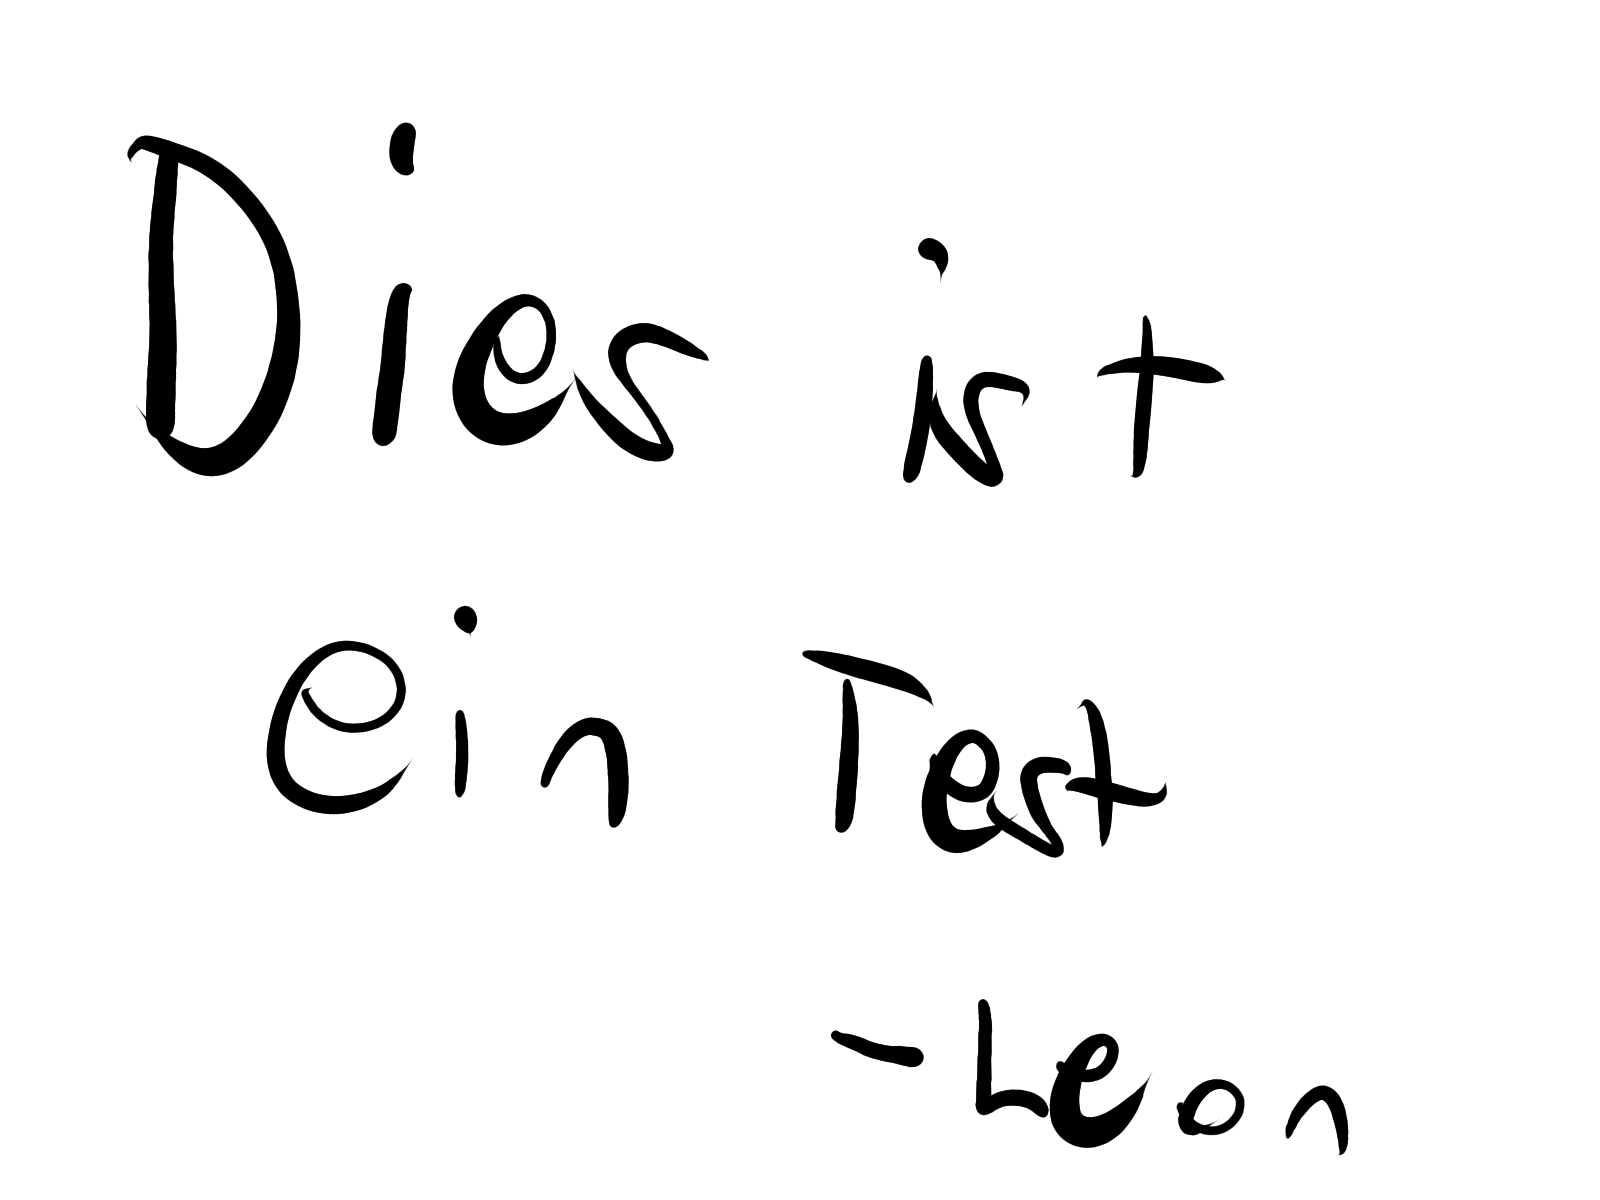 Dies ist
ein Test
- Leon